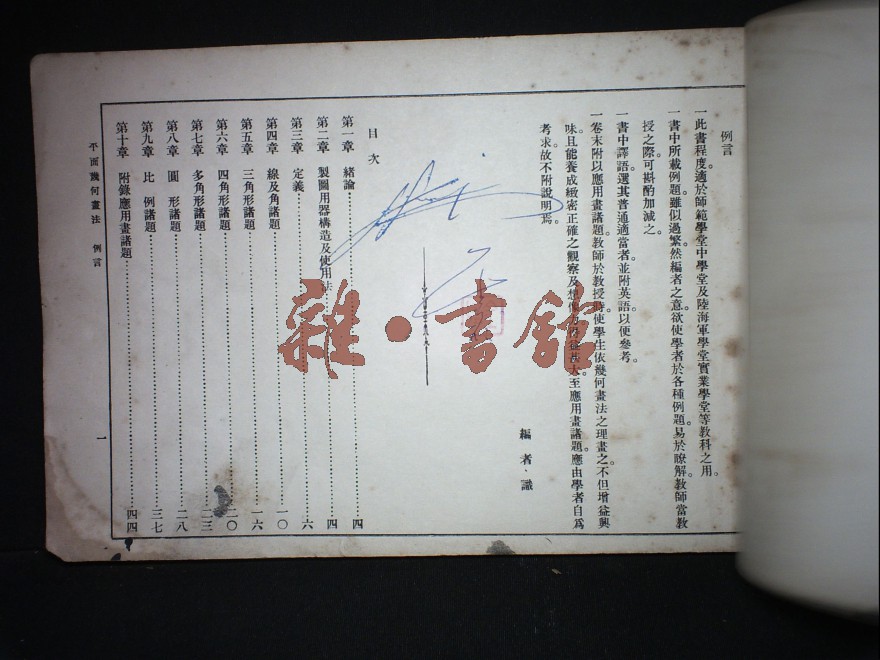 例言
一此書程度適於師範學堂中學堂及陸海軍學堂實業學堂等教科之用。
一書中所載例題。雖似過繁。然編者之意。欲使學者於各種例題。易於瞭解。教師當教
授之際。可斟酌加減之。
一書中譯語。選其普通適當者。並附英語。以便參考。
一卷末附以應用畫諸題。教師於教授時。使學生依幾何畫法之理畫之。不但增益興
味。且能養成緻密正確之觀察及想像力。裨益甚大。至應用畫諸題。應由學者自爲
考求。故不附說明焉。
編者識
目次
第一章 緒論 四
第二章 製圖用器構造及使用法 四
第三章 定義 六
第四章 線及角諸題 一〇
第五章 三角形諸題 一六
第六章 四角形諸題 二〇
第七章 多角形諸題 二三
第八章 圓形諸題 二八
第九章 比例諸題 三七
第十章 附錄應用畫諸題 四四
平面幾何畫法 例言
一
雜·書館